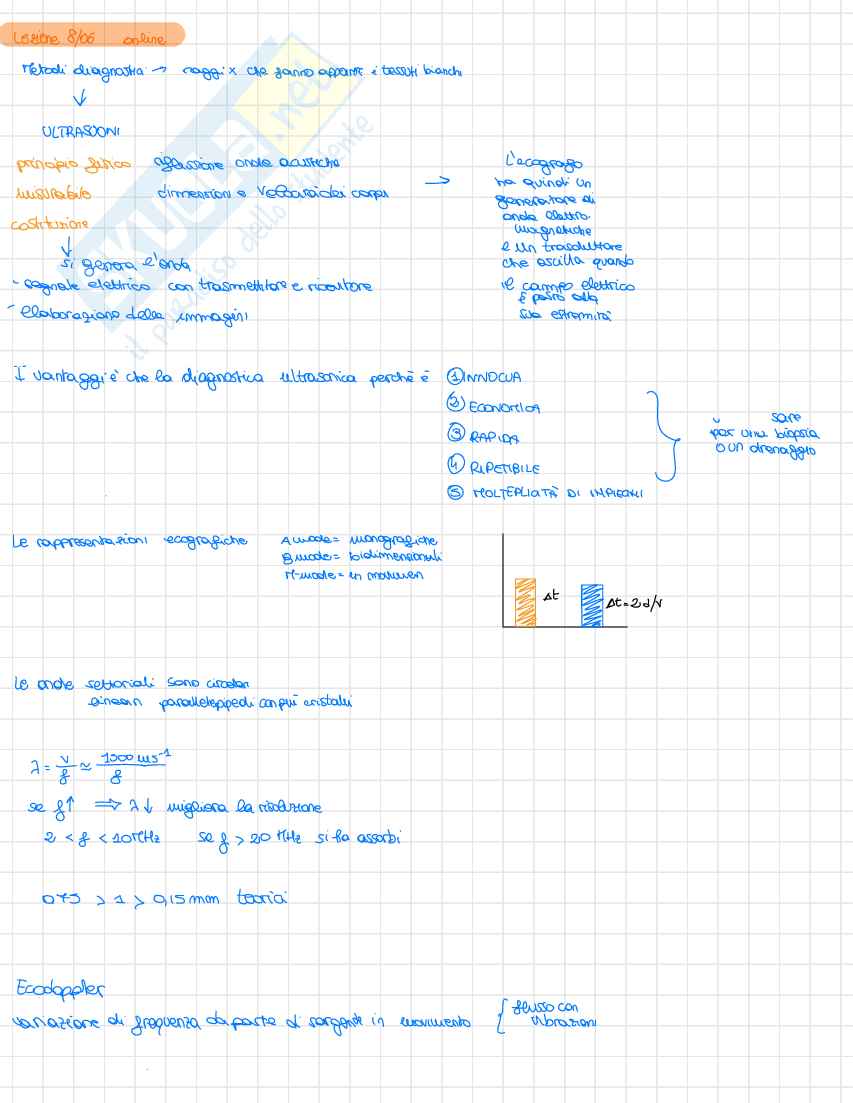 Lezione 8/06 online
Metodi diagnostia → raggi x che fanno apparire i tessuti bianchi
ULTRASUONI
principio fisico riflessione onde acustiche
misurabile dimensioni e velocità dei corpi
costituzione
si genera l'onda
- segnale elettrico con trasmettitore e ricevitore
- elaborazione delle immagini
→
L'ecografo
ha quindi un
generatore di
onda elettro.
magnetiche
e un trasduttore
che oscilla quando
il campo elettrico
è posto alla
sua estremità
I vantaggi è che la diagnostica ultrasonica perché è ① INNOCUA
② ECONOMICA
③ RAPIDA
④ RIPETIBILE
⑤ MOLTEPLICITÀ DI IMPIEGHI
sare
per una biopsia
o un drenaggio
Le rappresentazioni ecografiche A mode = monografiche
B mode = bidimensionali
M-mode = in movimen
Δt
Δt = 2d/v
Le onde settoriali sono circolari
lineari parallelepipedi con più cristalli
λ = v/f ≃ 1500 ms⁻¹/f
se f↑ ⟹ λ↓ migliora la risoluzione
2 < f < 10 MHz se f > 20 MHz si ha assorbi
075 > 1 > 0,15 mm teorici
Ecodoppler
variazione di frequenza da parte di sorgente in movimento { flusso con
vibrazioni
SKUOLA.net
il paradiso dello studente